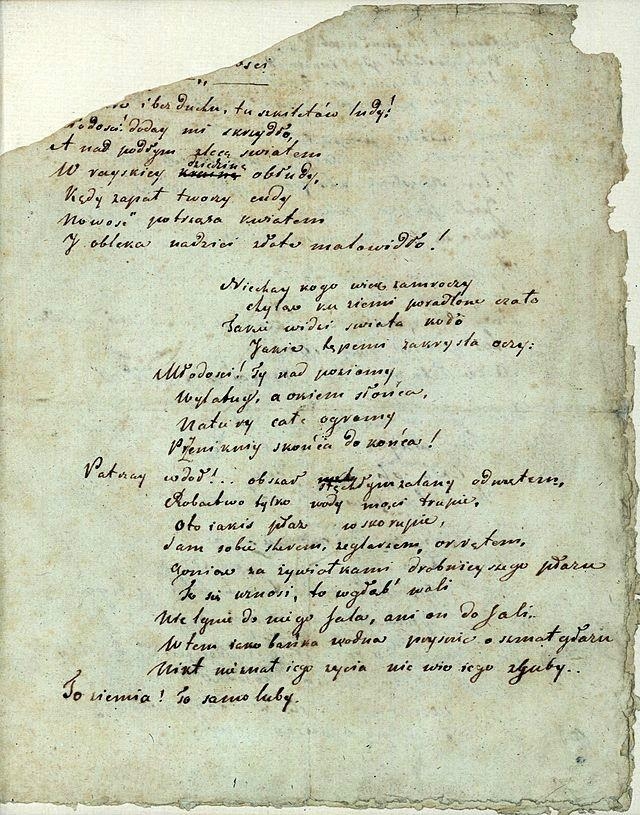 ości
i bez duchu, tu szkieletów ludy!
łodości! doday mi skrzydło,
A nad podłym zlecę światem
W rayskiey krainę dziedzinę obłudy,
Kędy zapał tworzy cudy
Nowość potrząsa kwiatem
Y obleka nadziei złote malowidło!
Niechay kogo wiek zamroczy
Chyląc ku ziemi poradlone czoło
Takie widzi świata koło
Jakie tępemi zakryśla oczy:
Młodości! Ty nad poziomy
Wylatuy, a okiem słońca,
Natury całe ogromy
Przeniknиy skończa do końca!
Patrzay w doł!.. obszar stęchłym zalany odmętem,
Robactwo tylko wody mąci trupie,
Oto iakiś płaz w skorupie,
Sam sobie sterem, żeglarzem, okrętem,
Goniąc za żywiołkami drobnieyszego płazu
To się wznosi, to wgłąb wali
Nie lgnie do niego fala, ani on do fali..
Wtem iako bańka wodna prysnie o szmat głazu
Nikt nieznał iego życia nie wie iego zguby..
To ziemia! To samoluby.